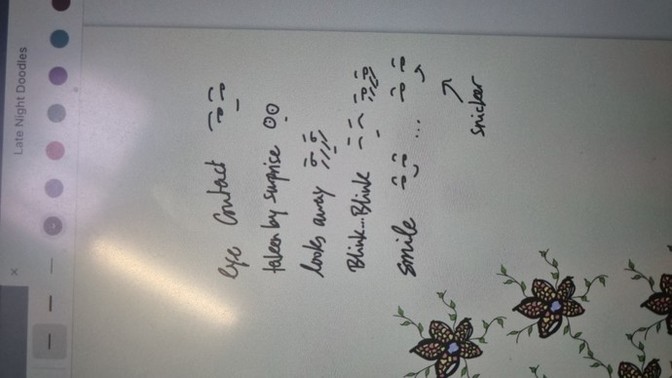 Late Night Doodles
Eye Contact
taken by suprise
looks away
Blink...Blink
Smile ...
snicker